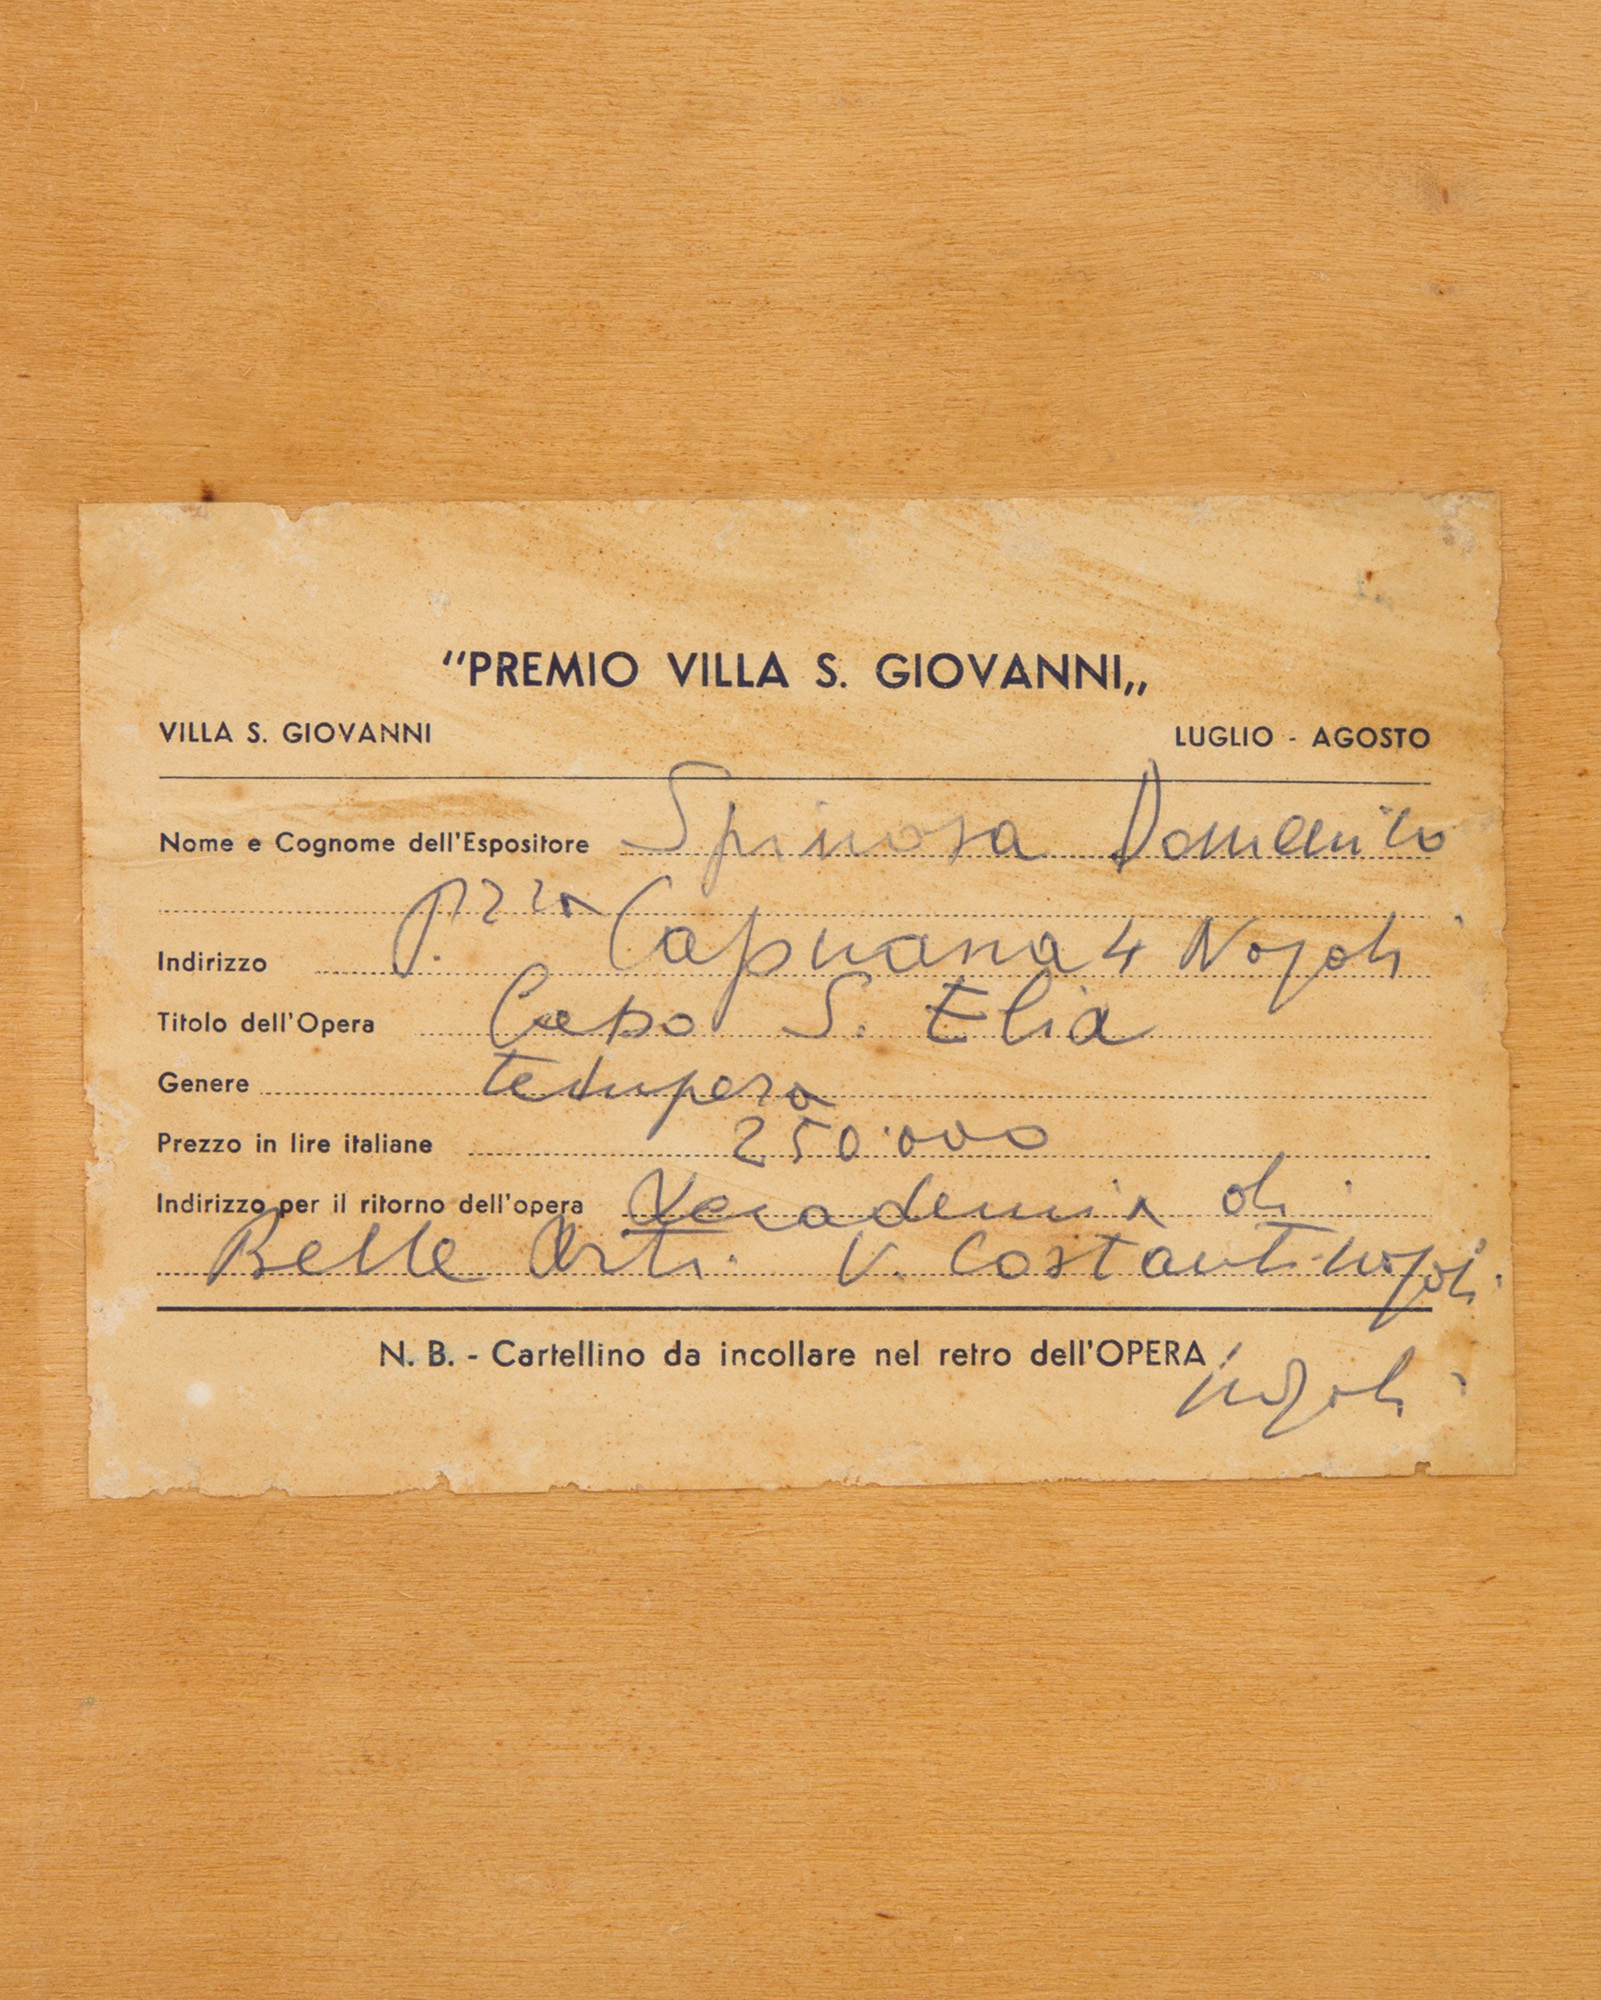 "PREMIO VILLA S. GIOVANNI„
VILLA S. GIOVANNI LUGLIO - AGOSTO
Nome e Cognome dell'Espositore Spinosa Domenico
Indirizzo P.zza Capuana 4 Napoli
Titolo dell'Opera Capo S. Elia
Genere tempera
Prezzo in lire italiane 250.000
Indirizzo per il ritorno dell'opera Accademia di
Belle Arti. V. Costantinopoli
N. B. - Cartellino da incollare nel retro dell'OPERA
Napoli